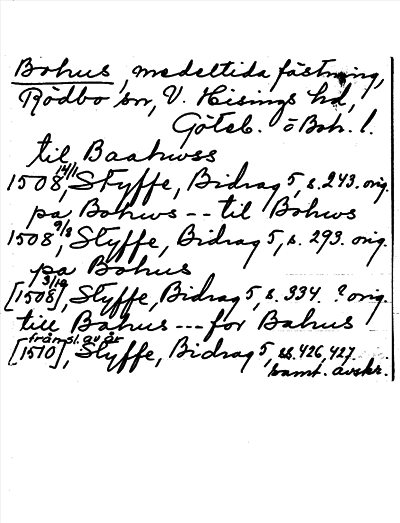 Bohus, medeltida fästning,
Rödbo sn, V. Hisings hd,
Göteb. o Boh. l.
til Baahwss
1508 14/11, Styffe, Bidrag 5, s. 243. orig.
pa Bohws -- til Bohws
1508 9/3, Styffe, Bidrag 5, s. 293. orig.
pa Bohus
[1508] 3/10, Styffe, Bidrag 5, s. 334. ? orig.
till Bahus --- for Bahus
från sl. av år
[1510], Styffe, Bidrag 5, ss. 426, 427.
samt. avskr.